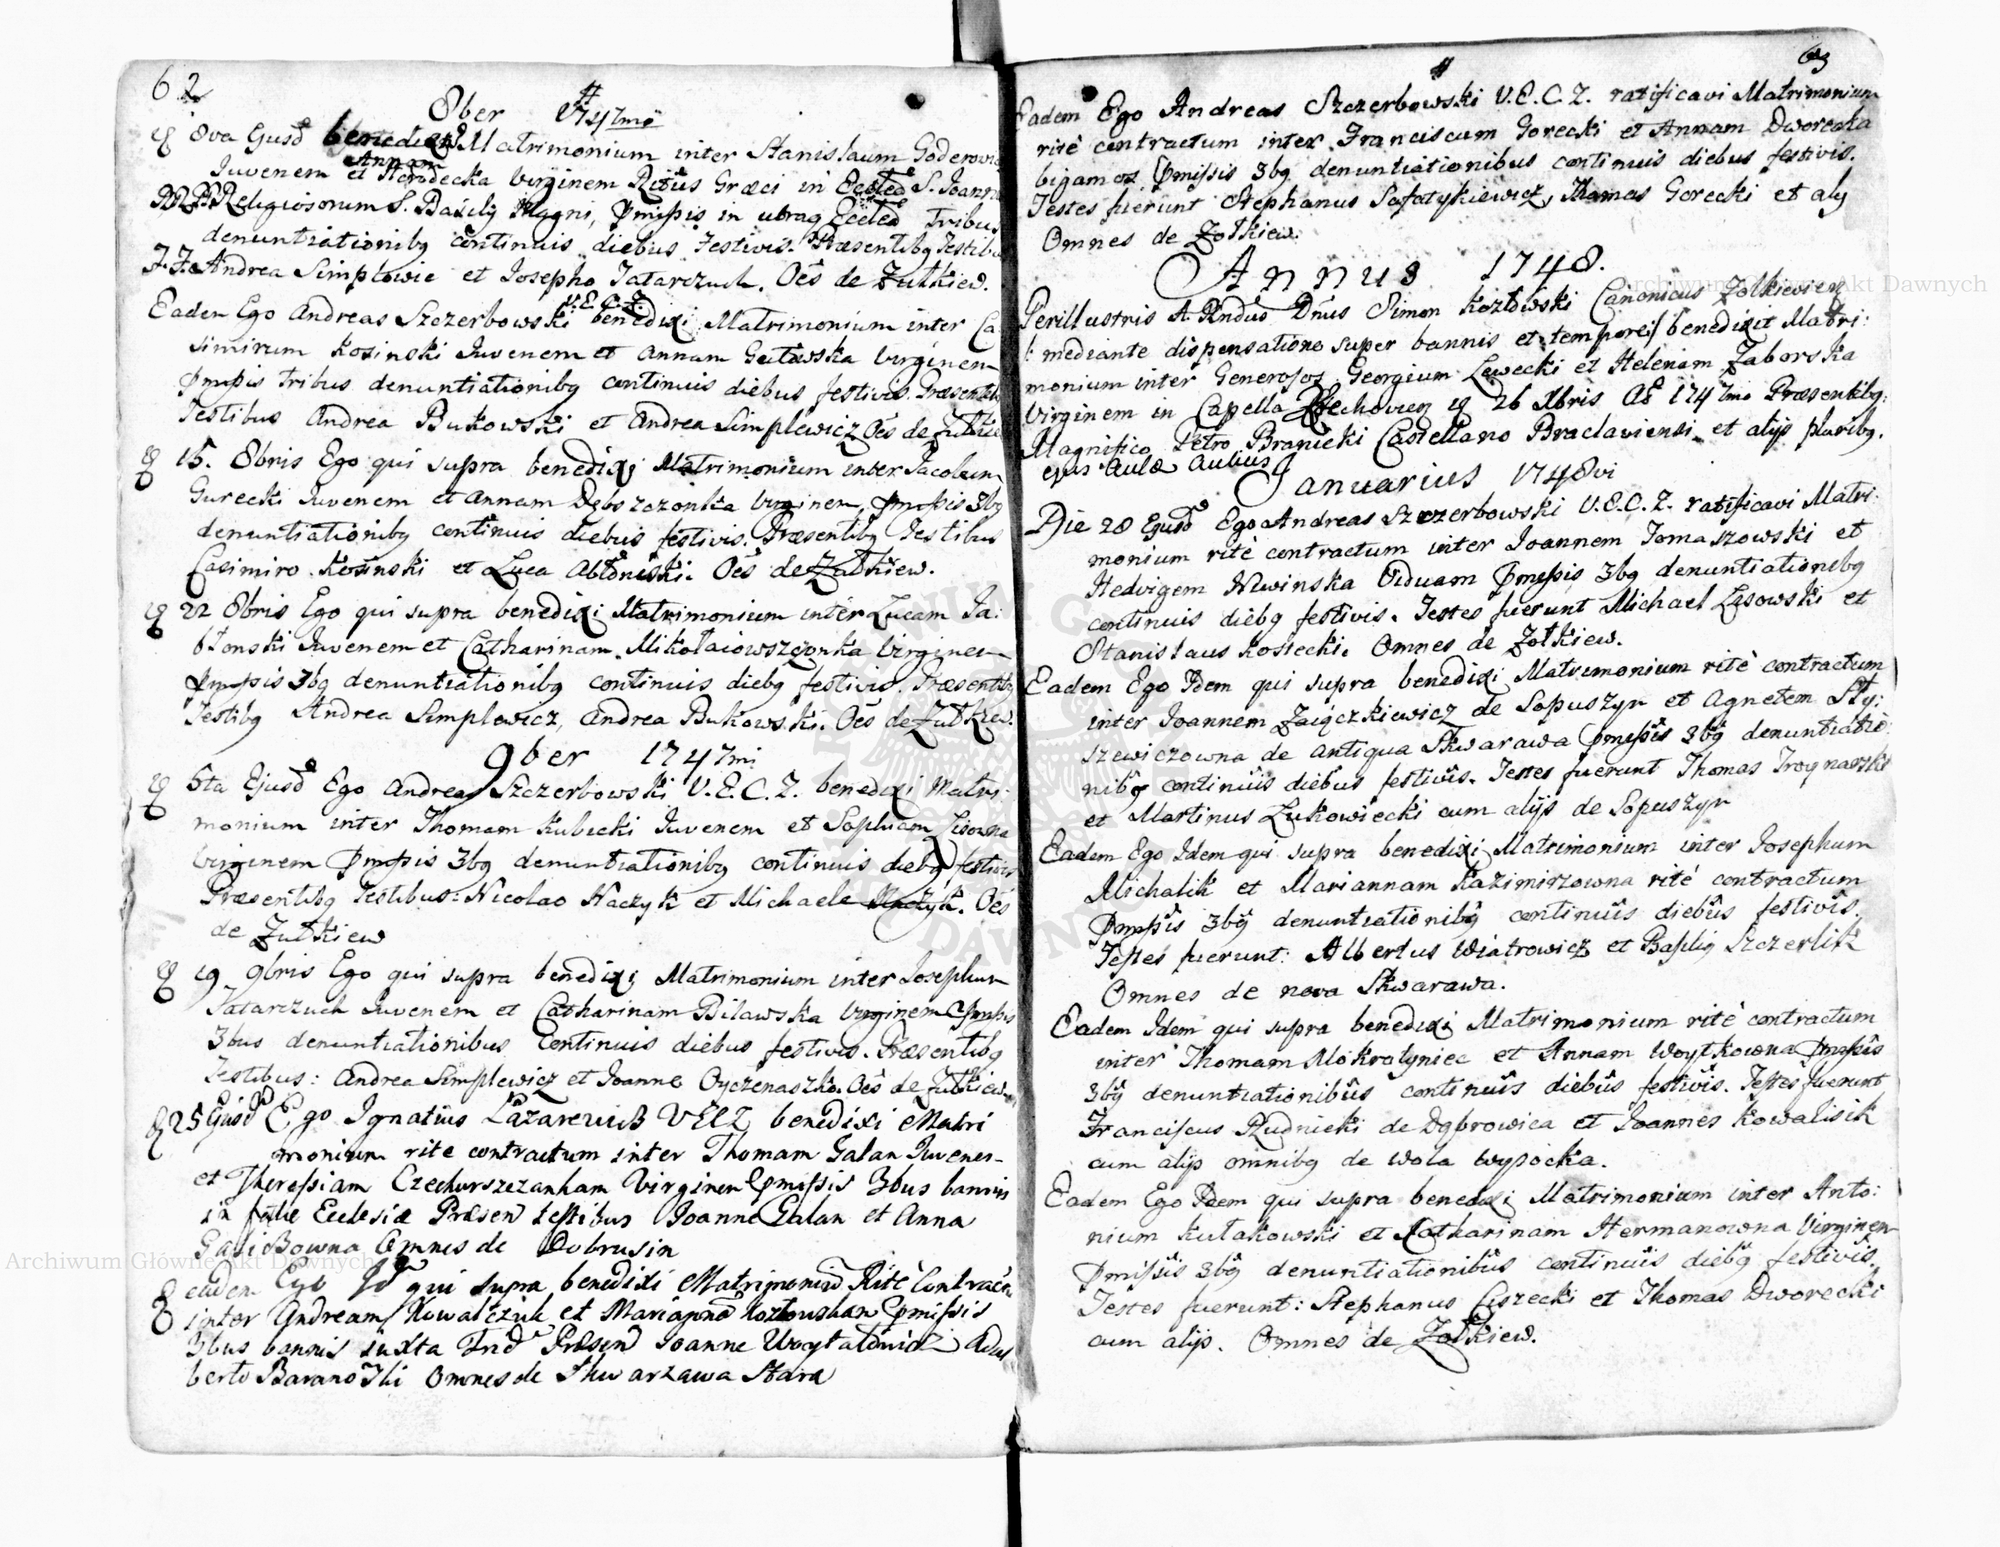 62
8ber 1747mo
8va Ejusd benedixi Matrimonium inter Stanislaum Goderowic
Juvenem et Annam Herodecka Virginem Ritûs Græci in Eccleâ S. Joannis
RR. PP. Religiosorum S. Basilij Magni, pmissis in utraq Eccleâ Tribus
denuntiationibg continuis diebus Festivis. Præsentibg Testibus
F.F. Andrea Simplowic et Josepho Tatarczuch. Oês de Zulkiew.
Eadem Ego Andreas Szczerbowski V.E.C.Z. benedixi Matrimonium inter Ca
simirum Kosinski Juvenem et Annam Gutowska Virginem
pmissis tribus denuntiationibg continuis diebus festivis. Præsentib
Testibus Andrea Bukowski et Andrea Simplewicz Oês de Zulkie
15. 8bris Ego qui supra benedixi Matrimonium inter Jacobum
Gurecki Juvenem et Annam Dębszczonka Virginem, pmissis 3bg
denuntiationibg continuis diebus festivis. Præsentibg Testibus
Casimiro Kosinski et Luca Abłonski. Oês de Zulkiew.
22 8bris Ego qui supra benedixi Matrimonium inter Lucam Ja:
błonski Juvenem et Catharinam Mikołaiowszczonka Virginem
pmissis 3bg denuntiationibg continuis diebg festivis. Præsentibg
Testibg Andrea Simplewicz, Andrea Bukowski. Oês de Zulkiew.
9ber 1747mi
6ta Ejusd Ego Andreas Szczerbowski V.E.C.Z. benedixi Matri:
monium inter Thomam Kubicki Juvenem et Sophiam Lisowna
Virginem pmissis 3bg denuntiationibg continuis diebg festivis
Præsentibg Testibus: Nicolao Haczyk et Michaele Oês
de Zulkiew
19 9bris Ego qui supra benedixi Matrimonium inter Josephum
Tatarczuch Juvenem et Catharinam Bilawska Virginem pmissis
3bus denuntiationibus continuis diebus festivis. Præsentibg
Testibus: Andrea Simplewicz et Joanne Oyczenaszko. Oês de Zulkiew.
25 Ejusd Ego Ignatius Lazarewicz VECZ benedixi Matri
monium rite contractum inter Thomam Galan Juvenem
et Theressiam Czechurszczanham Virginem pmissis 3bus bannis
in facie Ecclesiæ Præsen testibus Joanne Galan et Anna
Omnes de Dobrusin
eadem Ego Id qui supra benedixi Matrimoniu Ritè Contractu
inter Andream Kowalczuk et Marianna pmissis
3bus bannis iuxta Trid Præsen Joanne Adal
berto Omnes de Skwarzawa Stara
63
Eadem Ego Andreas Szczerbowski V.E.C.Z. ratificavi Matrimonium
ritè contractum inter Franciscum Gorecki et Annam Dworecka
bigamos pmissis 3bg denuntiationibus continuis diebus festivis.
Testes fuerunt Stephanus Safatykiewicz, Thomas Gorecki et alij
Omnes de Zolkiew.
Annus 1748.
Perillustris A. Rndus Dnus Simon Kozłowski Canonicus Zolkievien
/: mediante dispensatione super bannis et tempore:/ benedixit Matri:
monium inter Generosos Georgium Lewecki et Helenam Zaborska
Virginem in Capella 26 Xbris Aô 1747mo Præsentibg:
Magnifico Petro Branicki Castellano Braclaviensi et alijs pluribg.
ejus Aulæ Aulicis
Januarius 1748vi
Die 28 Ejusd Ego Andreas Szczerbowski V.E.C.Z. ratificavi Matri:
monium ritè contractum inter Joannem Tomaszowski et
Hedvigem Viduam pmissis 3bg denuntiationibg
continuis diebg festivis. Testes fuerunt Michael Lisowski et
Stanislaus Kosiecki. Omnes de Zołkiew.
Eadem Ego Idem qui supra benedixi Matrimonium ritè contractum
inter Joannem Zaiączkiewicz de Sopuszyn et Agnetem Sty:
szewiczowna de antiqua Skwarawa pmissis 3bg denuntiatio
nibg continuis diebus festivis. Testes fuerunt Thomas Troynarski
et Martinus Lukowiecki cum alijs de Sopuszyn
Eadem Ego Idem qui supra benedixi Matrimonium inter Josephum
Michalik et Mariannam Kazimirzowna ritè contractum
pmissis 3bg denuntiationibg continuis diebus festivis.
Testes fuerunt: Albertus Wiatrowicz et Basilig Szczerlik
Omnes de nova Skwarawa.
Eadem Idem qui supra benedixi Matrimonium ritè contractum
inter Thomam Mokratyniec et Annam Woytkowna pmissis
3bg denuntiationibus continuis diebus festivis. Testes fuerunt
Franciscus Rudnicki de Dąbrowica et Joannes Kowalisik
cum alijs omnibg de Wola Wysocka.
Eadem Ego Idem qui supra benedixi Matrimonium inter Anto:
nium Kułakowski et Catharinam Hermanowna Virginem
pmissis 3bg denuntiationibus continuis diebg festivis.
Testes fuerunt: Stephanus Ciszecki et Thomas Dworecki
cum alijs. Omnes de Zołkiew.
Archiwum Główne Akt Dawnych
Archiwum Główne Akt Dawnych